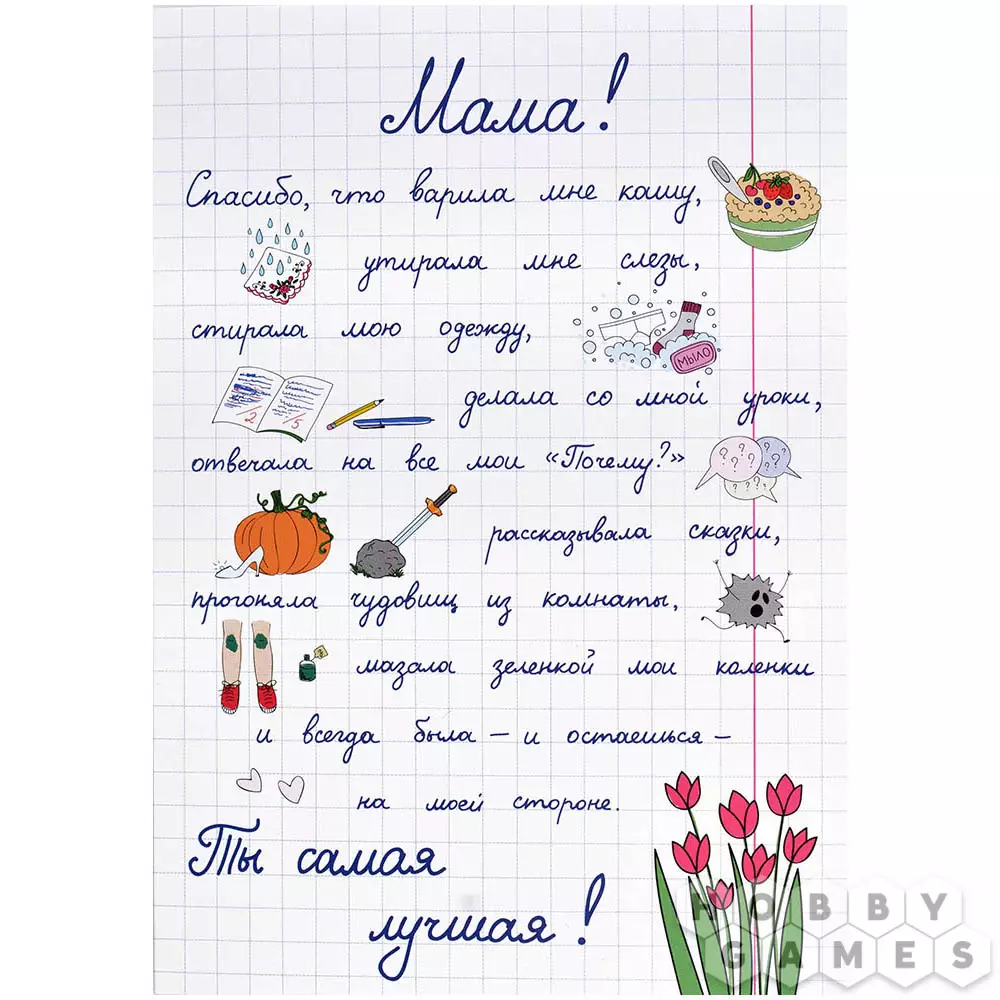 Мама!
Спасибо, что варила мне кашу,
утирала мне слезы,
стирала мою одежду,
МЫЛО
2 5
делала со мной уроки,
отвечала на все мои «Почему?»
? ? ? ? ? ? ? ? ? ?
рассказывала сказки,
прогоняла чудовищ из комнаты,
мазала зеленкой мои коленки
и всегда была – и остаешься –
на моей стороне.
Ты самая
лучшая!
HOBBY
GAMES